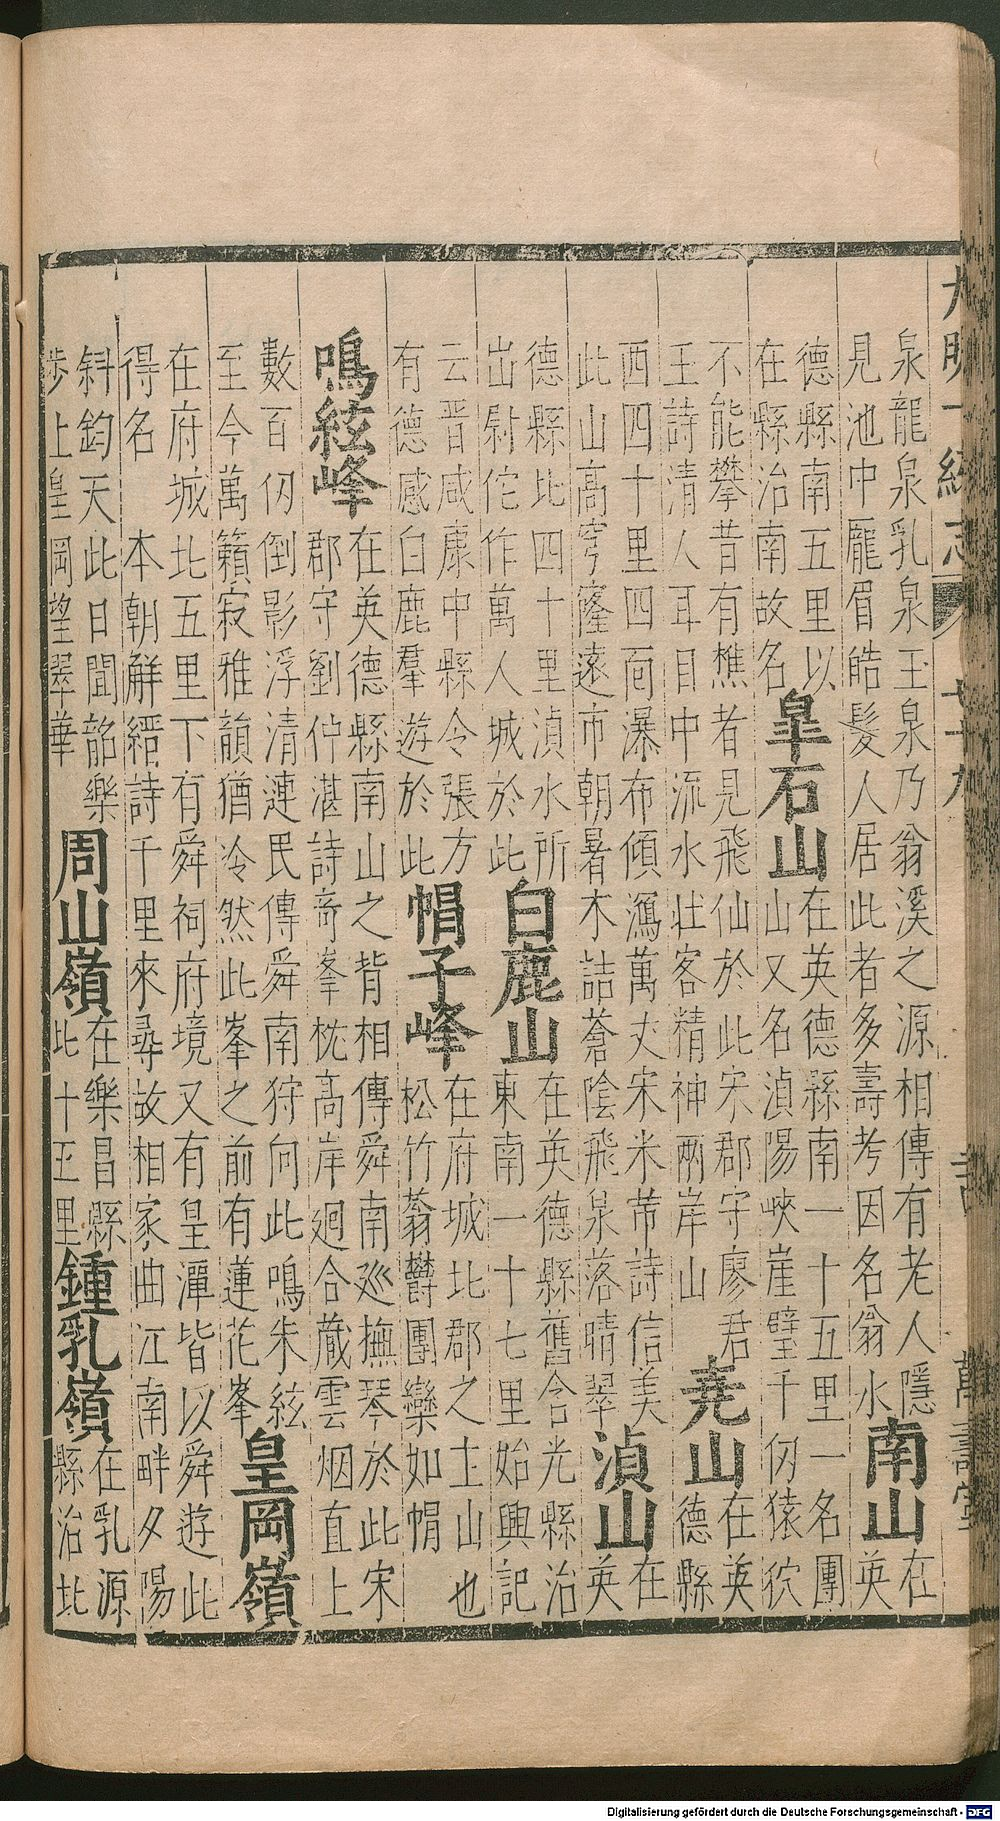 大明一統志 卷七十九 萬壽堂
泉龍泉乳泉玉泉乃翁溪之源相傳有老人隱
見池中龐眉皓髮人居此者多壽考因名翁水
南山
在
英
德縣南五里以
在縣治南故名
皐石山
在英德縣南一十五里一名團
山又名湞陽峽崖壁千仞猿狖
不能攀昔有樵者見飛仙於此宋郡守廖君
王詩清人耳目中流水壯客精神兩岸山
堯山
在英
德縣
西四十里四面瀑布傾瀉萬丈宋米芾詩信美
此山高穹窿遠市朝暑木詰蒼陰飛泉落晴翠
湞山
在
英
德縣北四十里湞水所
出尉佗作萬人城於此
白鹿山
在英德縣舊含光縣治
東南一十七里始興記
云晉咸康中縣令張方
有德感白鹿羣遊於此
帽子峰
在府城北郡之主山也
松竹蓊欝團欒如帽
鳴絃峰
在英德縣南山之背相傳舜南巡撫琴於此宋
郡守劉佇湛詩奇峯枕高岸廻合蔵雲烟直上
數百仞倒影浮清漣民傳舜南狩向此鳴朱絃
至今萬籟寂雅韻猶泠然此峯之前有蓮花峯
皇岡嶺
在府城北五里下有舜祠府境又有皇潭皆以舜遊此
得名 本朝解縉詩千里來尋故相家曲江南畔夕陽
斜鈞天此日聞韶樂
步上皇岡望翠華
周山嶺
在樂昌縣
北十五里
鍾乳嶺
在乳源
縣治北
Digitalisierung gefördert durch die Deutsche Forschungsgemeinschaft - DFG